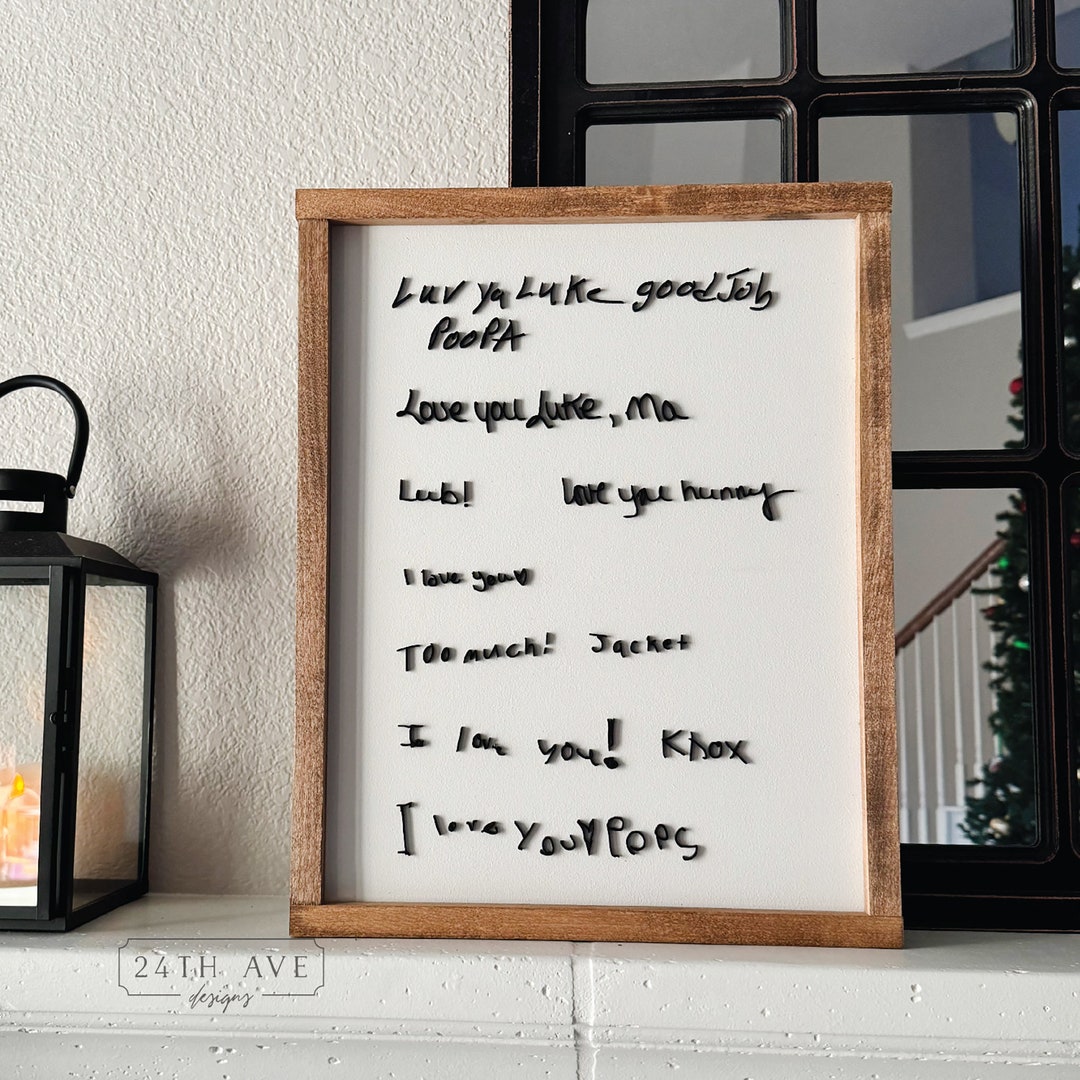 Luv ya Luke good Job
PooPA
Love you Luke, Ma
Lub! love you hunny
I love you♥
Too much! Jacket
I love you! Knox
I love you♥ Pops
24TH AVE
designs